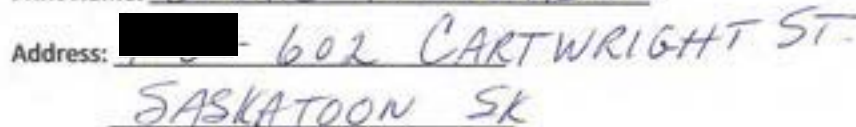 Address: - 602 CARTWRIGHT ST.
SASKATOON SK